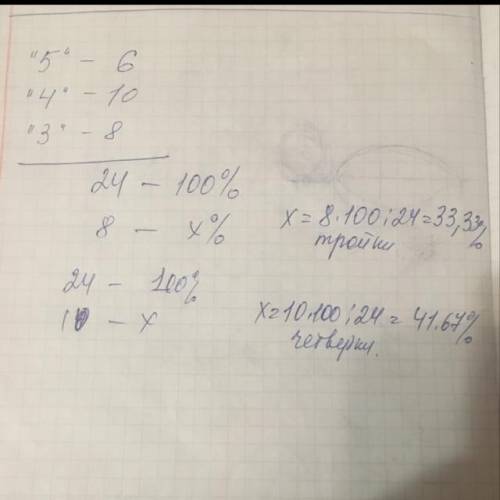 "5" - 6
"4" - 10
"3" - 8
24 - 100%
8 - x%
x = 8·100:24=33,33%
тройки.
24 - 100%
10 - x
x=10·100:24= 41.67%
четверки.